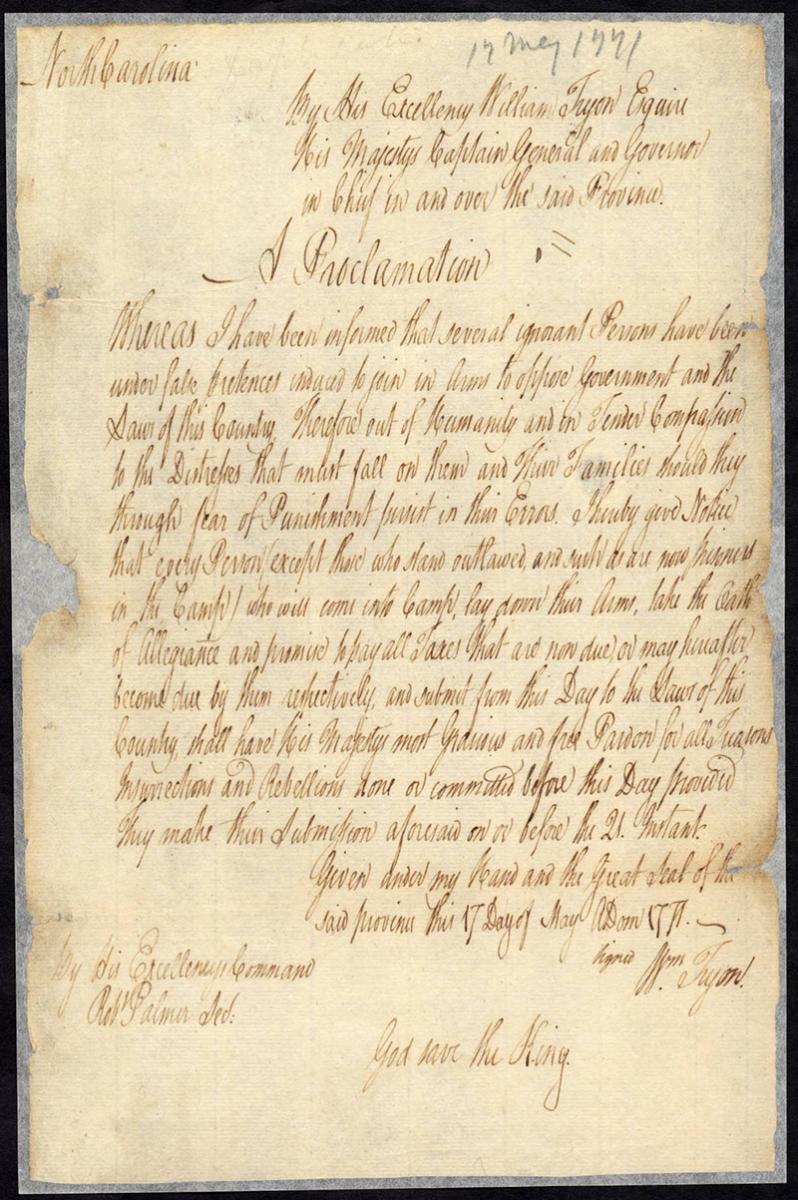 17 May 1771
North Carolina
By His Excellency William Tryon Esquire
His Majestys Captain General and Governor
in Chief in and over the said Province.
A Proclamation
Whereas I have been informed that several ignorant Persons have been
under false pretences induced to join in Arms to oppose Government and the
Laws of this Country. Therefore out of Humanity and in Tender Compassion
to the Distresses that must fall on them and Their Families should they
through fear of Punishment persist in their Errors. I hereby give Notice
that every Person (except those who stand outlawed, and such as are now prisoners
in the Camp) who will come into Camp, lay down their Arms, take the Oath
of Allegiance and promise to pay all Taxes that are now due, or may hereafter
become due by them respectively, and submit from this Day to the Laws of this
Country, shall have His Majestys most Gracious and free Pardon for all Treasons
Insurrections and Rebellions done or committed before this Day provided
They make their Submission aforesaid on or before the 21. Instant.
Given under my Hand and the Great Seal of the
said province this 17 Day of May ADom 1771.
signed Wm Tryon.
By His Excellencys Command
Robt Palmer Sec:
God save the King.